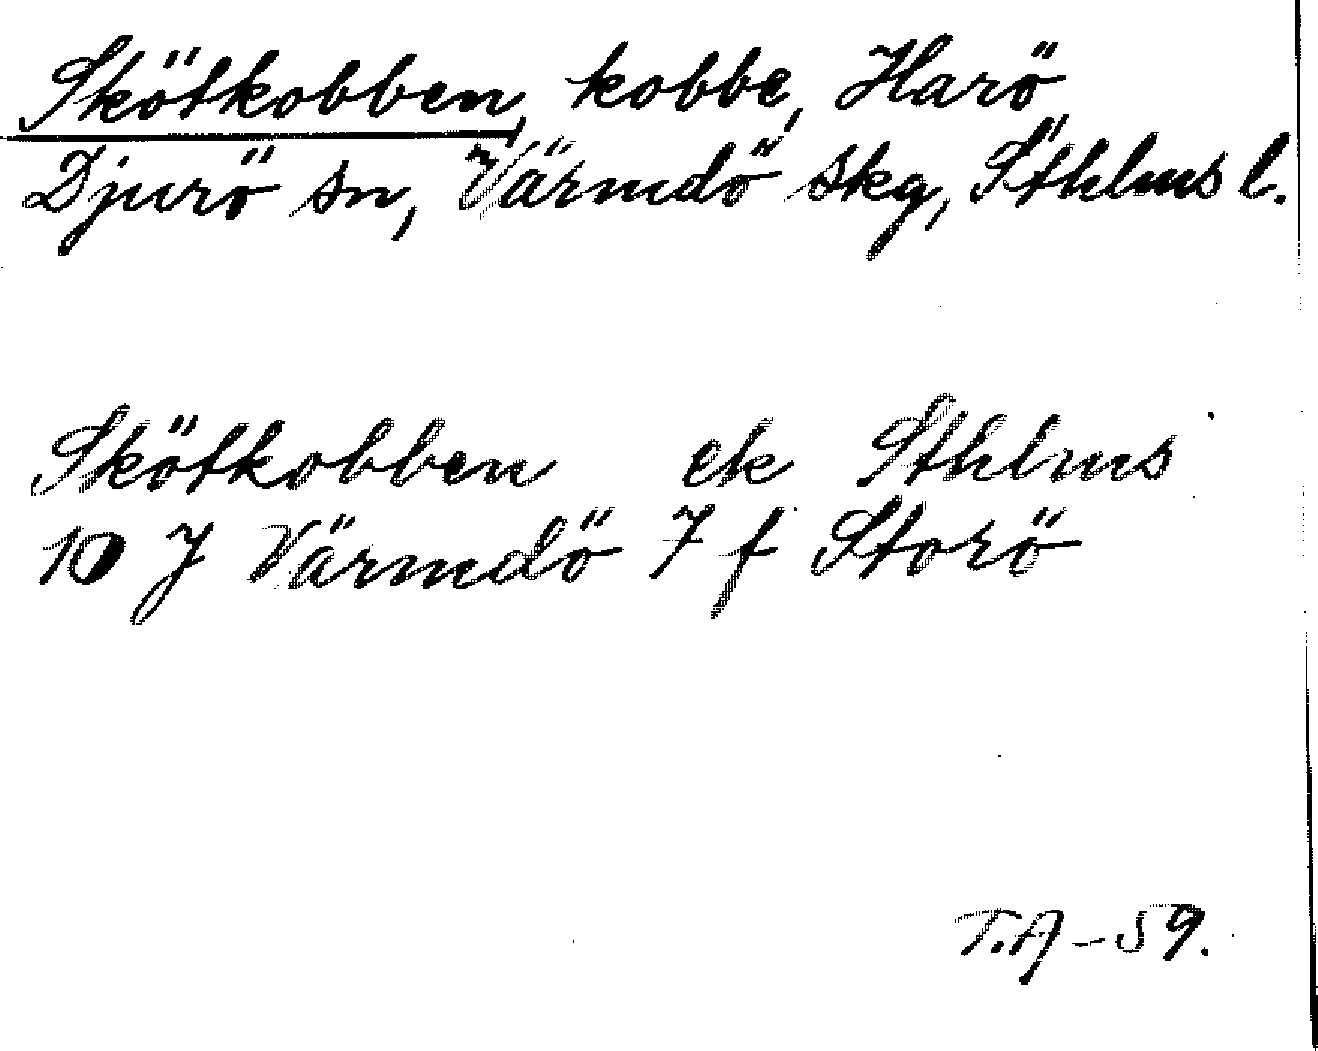 Skötkobben, kobbe, Harö
Djurö sn, Värmdö skg, Sthlms l.
Skötkobben ek Sthlms
10 J Värmdö 7 f Storö
T.A-59.